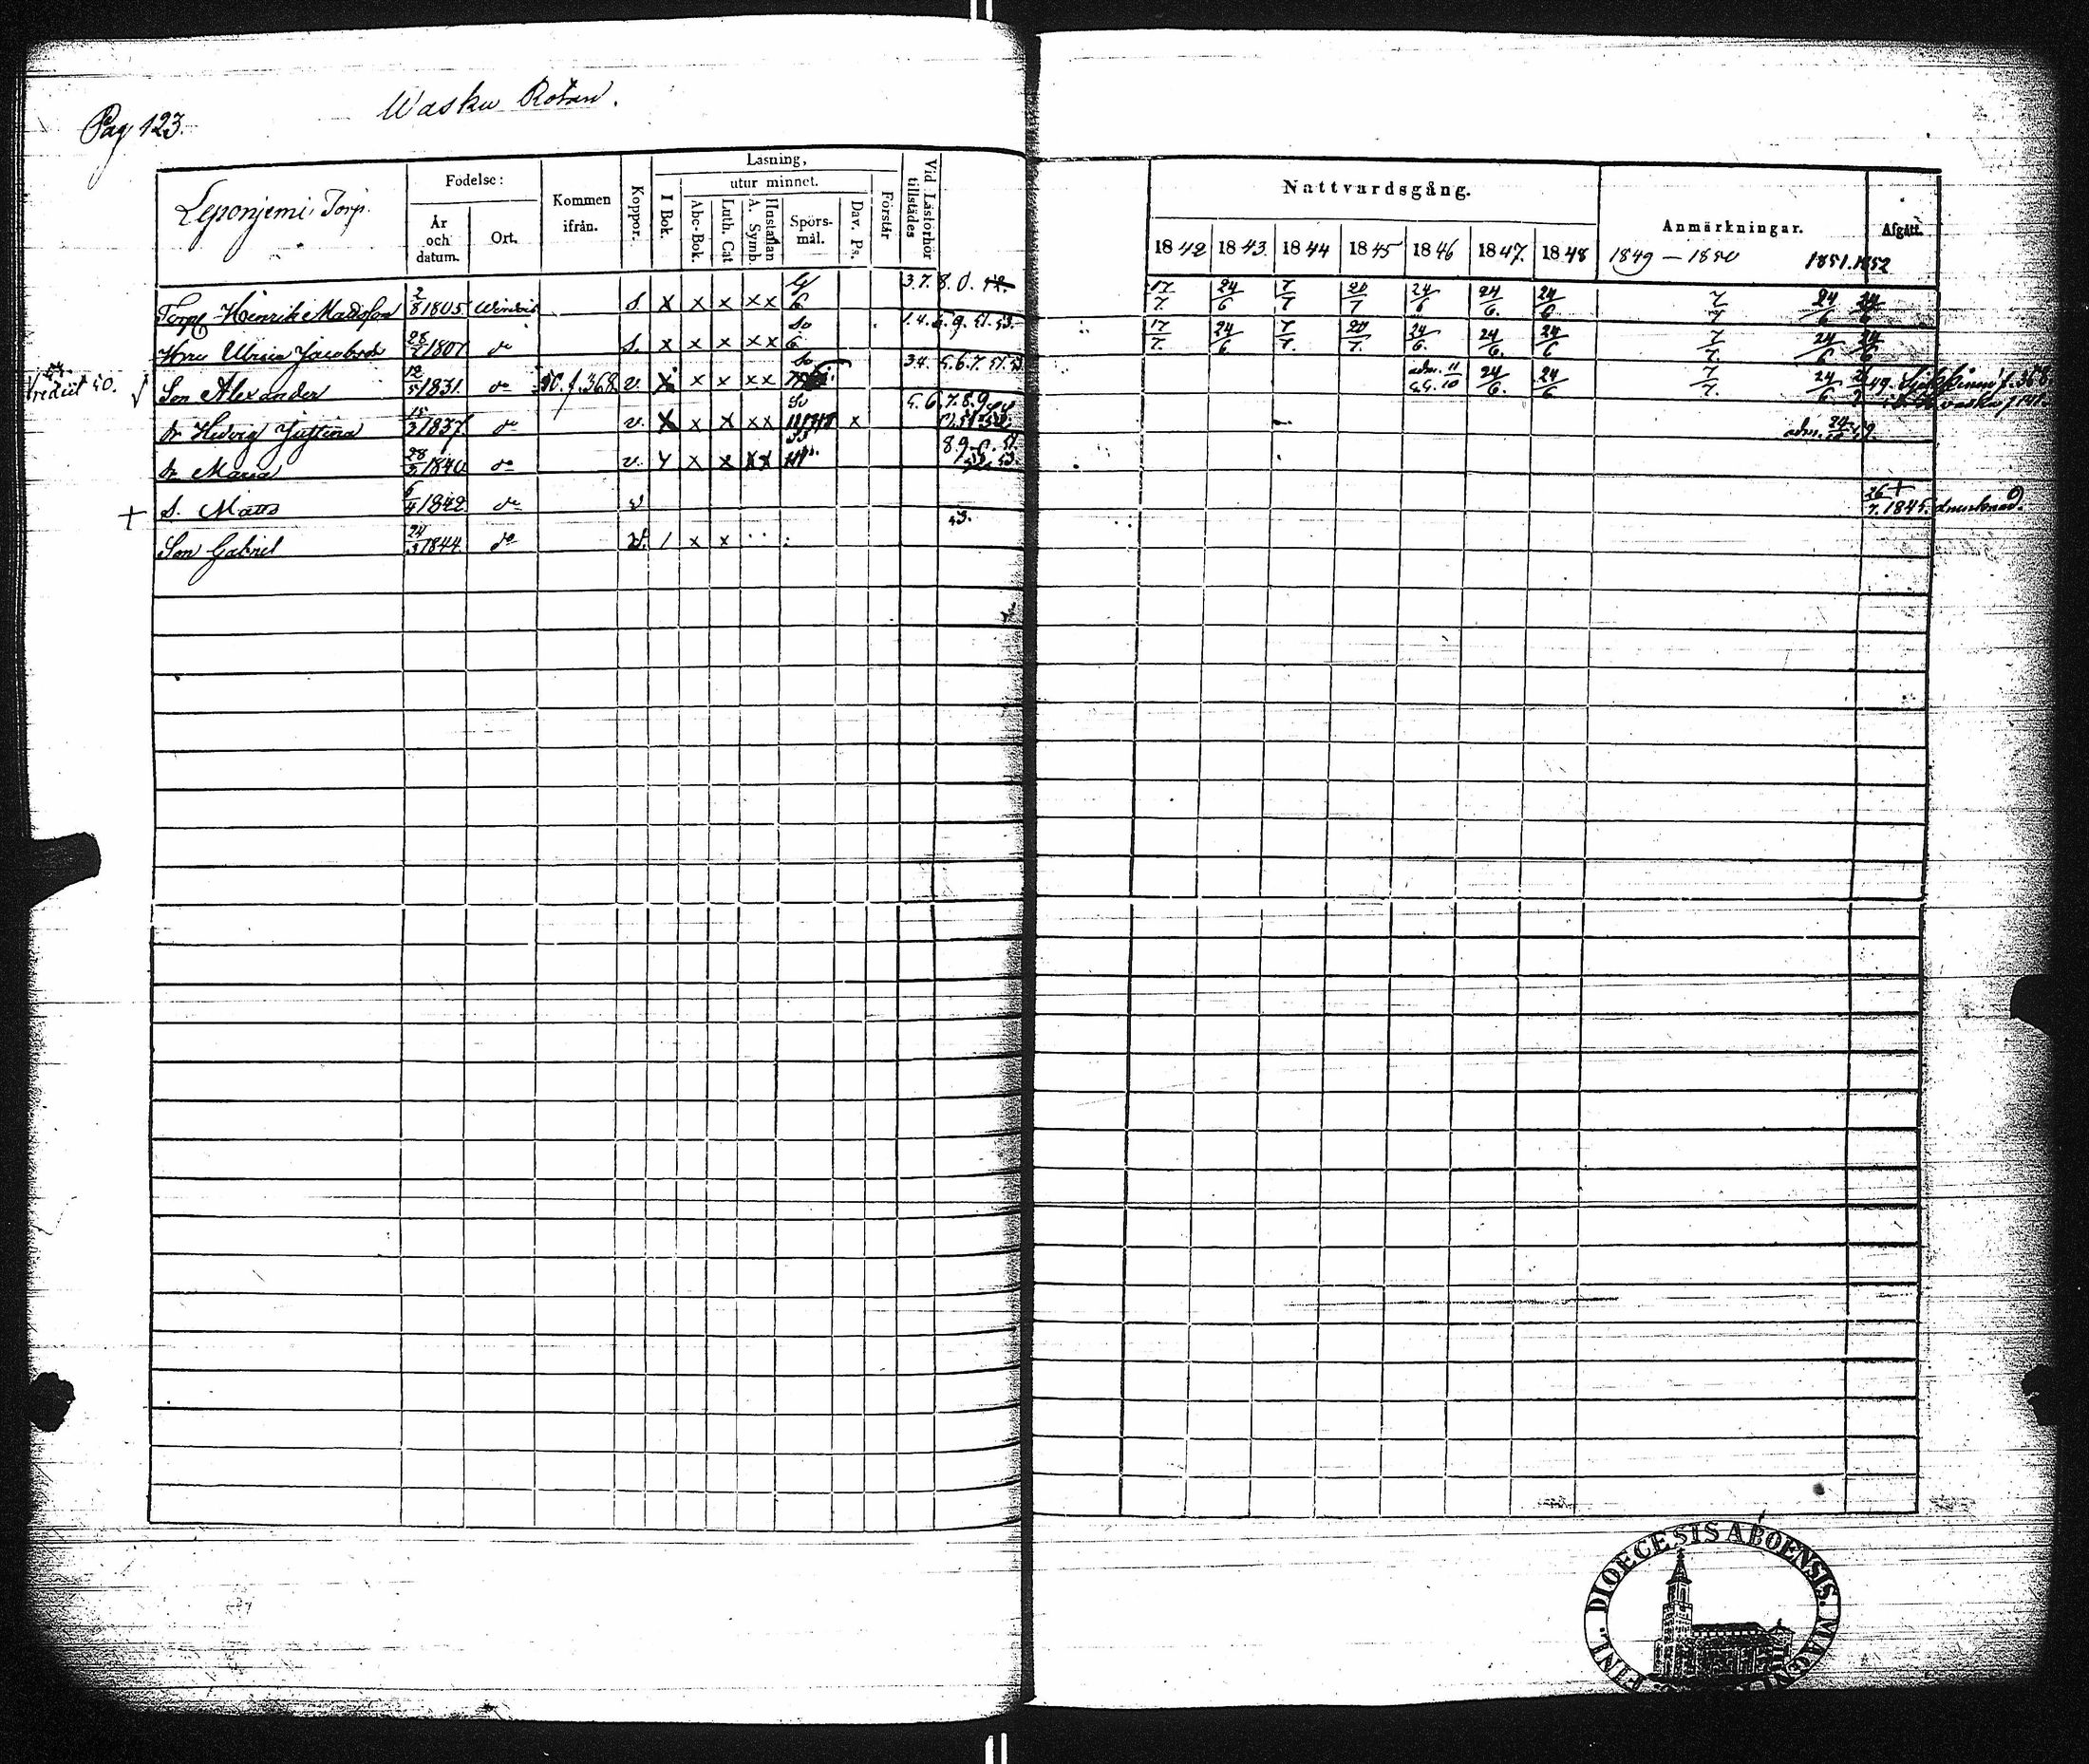 Pag 123.
Wasku Rotan.
Leponjemi Torp.
Födelse:
År och datum.
Ort.
Kommen ifrån.
Koppor.
Läsning,
I Bok.
utur minnet.
Abc-Bok.
Luth. Cat
Hustaflan A. Symb.
Spörsmål.
Dav. Ps.
Förstår
Vid Läsförhör tillstädes
Nattvardsgång.
1842 1843. 1844 1845 1846 1847. 1848
Anmärkningar.
1849 — 1850 1851. 1852
Afgått.
Torp. Henrik Mattsson 2/8 1805. s. x x x x x 3.7.8.0. 17/7. 24/6 7/7 20/7 24/6 24/6. 24/6. 7/7 24/6 24/6
Hru Ulrica Jacobsdr 28/2 1807 do s. x x x x x 1.4.5.9.51.53. 17/7. 24/6 7/7. 20/7. 24/6. 24/6. 24/6 7/7. 24/6 24/6
Son Alexander 12/5 1831. do 50. f. 368 v. x x x x x 34. 5.6.7.51.53 adm. 11 24/6. 24/6 7/7. 24/6 49. f. 368
dr Hedvig Justina 15/3 1837. do v. x x x x x x 5.6.7.8.9 adm. 24
dr Maria 28/5 1840 do v. x x x x 8.9.0.51 52.53.
+ S. Matts 6/4 1842 do v 26/7. 1845. +
Son Gabriel 24/3 1844. do v. / x x 53.
DIOECESIS ABOENSIS. MAGN. FINL.